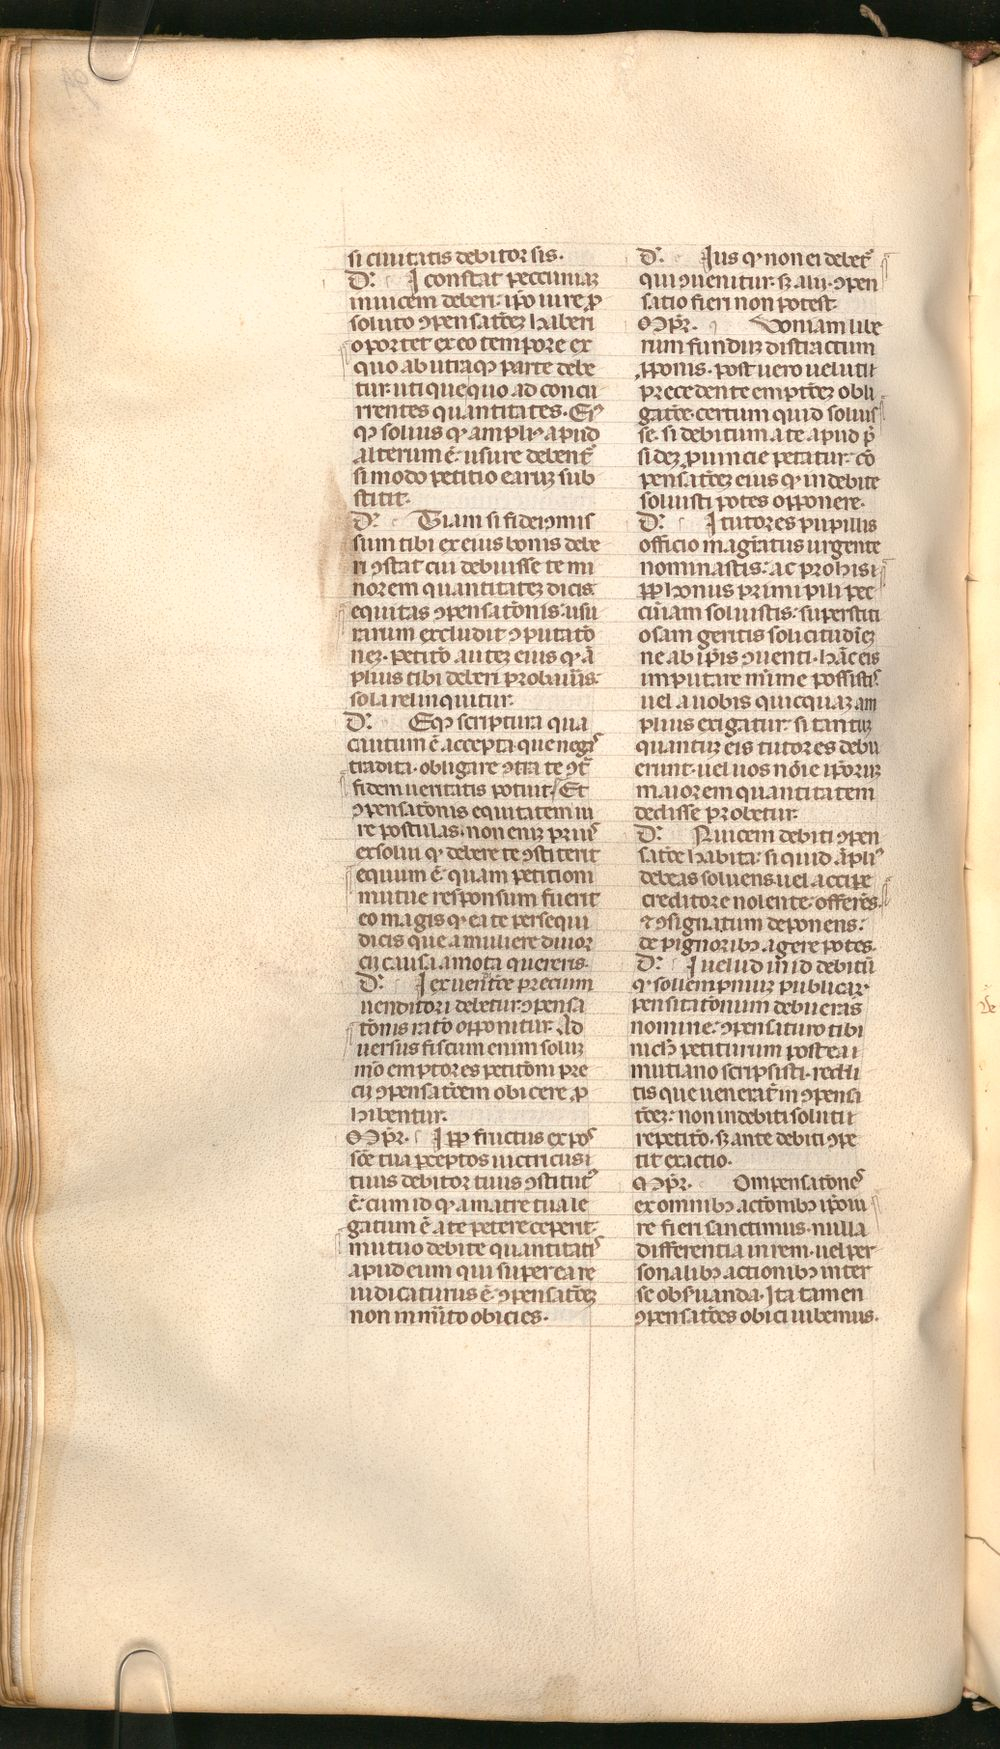 si ciuitatis debitor sis.
D᷑. I constat peccuniaꝫ
inuicem deberi: ip̄o iure ꝓ
soluto ꝯpensat̄ōeꝫ haberi
oportet ex eo tempore ex
quo ab utraqꝫ parte debe
tur. uti que quo ad concu
rrentes quantitates. Eiꝰ
qꝫ solius qͥ ampliꝰ apud
alterum ē. usure debent᷑
si modo petitio earuꝫ sub
stitit.
D᷑. Tiam si fideiussu
sum tibi ex eius bonis debe
ri ꝯstat cui debuisse te mi
norem quantitateꝫ dicis
equitas ꝯpensat̄onis: usu
rarum excludit ꝯputat̄o
neꝫ. petit̄o auteꝫ eius qͥ ā
plius tibi deberi probaūis
sola relinquitur.
D᷑. Eqꝫ scriptura qua
cautum ē accepta. que negͣs
tradita. obligare ꝯtͣ te ꝯtͣ
fidem ueritatis potuit. Et
ꝯpensat̄onis equitatem iu
re postulas. non enim priꝰ
exsolui qͥ debere te ꝯstiterit
equum ē. quam petitioni
mutue responsum fuerit
eo magis qͥ ea te persequi
dicis que a muliere diuor
cij causa amota quereris.
D᷑. I ex uent̄ōe precium
uenditori debetur. ꝯpensa
t̄onis rat̄o opponitur. Ad
uersus fiscum enim soluꝫ
m̄o emptores petit̄oni pre
cij ꝯpensat̄ōem obicere ꝓ
hibentur.
Ꝙꝑr. I pp̄ fructus ex pos
s̄ōe tua ꝑceptos uictricus i
tuus debitor tuus ꝯstitutꝰ
ē. cum id qͥ a matre tua le
gatum ē a te petere ceperit.
mutuo debite quantitatꝭ
apud eum qui super ea re
iudicaturus ē. ꝯpensat̄ōeꝫ
non inm̄ito obicies.
D᷑. Ius qͥ non ei debet᷑
qui ꝯuenitur. sꝫ alii. ꝯpen
satio fieri non potest.
Ꝙꝑr. Voniam libe
rum funduꝫ distractum
ꝓponis. post uero ueluti
precedente empt̄ōeꝫ obli
gat̄ōe. certum quid soluis
se. si debitum a te apud p̄
sideꝫ ꝓuincie petatur. cō
pensat̄ōeꝫ eius qͥ indebite
soluisti potes opponere.
D᷑. I tutores pupillis
officio magr̄atus urgente
nominastis: ac prohis i
pp̄ honus primipili pec
cūiam soluistis: superstiti
osam geritis solicitudīeꝫ
ne ab ip̄is ꝯuenti. hāc eis
imputare mīme possistis
uel a uobis quicquaꝫ am
plius exigatur. si tantuꝫ
quantuꝫ eis tutores debu
erunt. uel uos nōie ip̄oruꝫ
maiorem quantitatem
dedisse probetur.
D᷑. Nuicem debiti ꝯpen
sat̄ōe habita. si quid āpliꝰ
debeas soluens uel accipe
creditore nolente. offerēs.
⁊ ꝯsignatum deponens:
de pignoribꝫ agere potes.
D᷑. I uelud in id debitū
qͥ solempniuꝫ publicaꝝ
pensitat̄onum debueras
nomine: ꝯpensaturo tibi
nichꝉ petiturum postea i
mutiano scripsisti. reddi
tis que uenerāt in ꝯpensa
t̄ōeꝫ: non indebiti soluti i
repetit̄o. sꝫ ante debiti ꝯpe
tit exactio.
Ꝙꝑr. Ompensat̄ones
ex omnibꝫ act̄onibꝫ ip̄o iu
re fieri sanctimus. nulla
differentia in rem. uel per
sonalibꝫ actionibꝫ inter
se obs̄uanda. Ita tamen
ꝯpensat̄ōes obici iubemus.